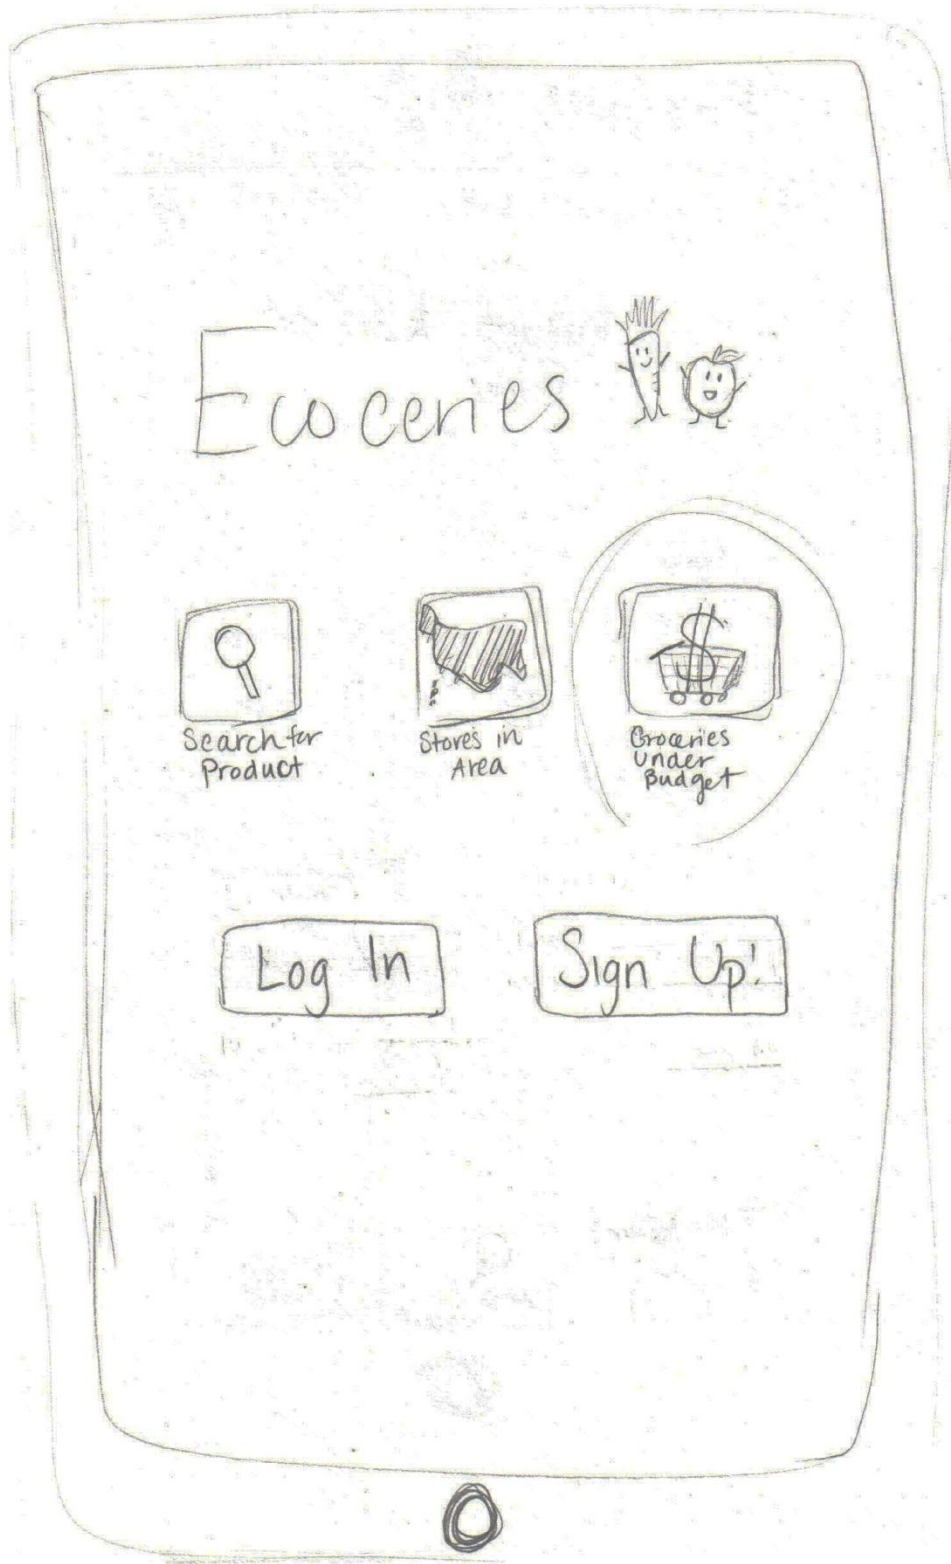 Ecoceries
Search for
Product
Stores in
Area
$
Groceries
Under
Budget
Log In
Sign Up!